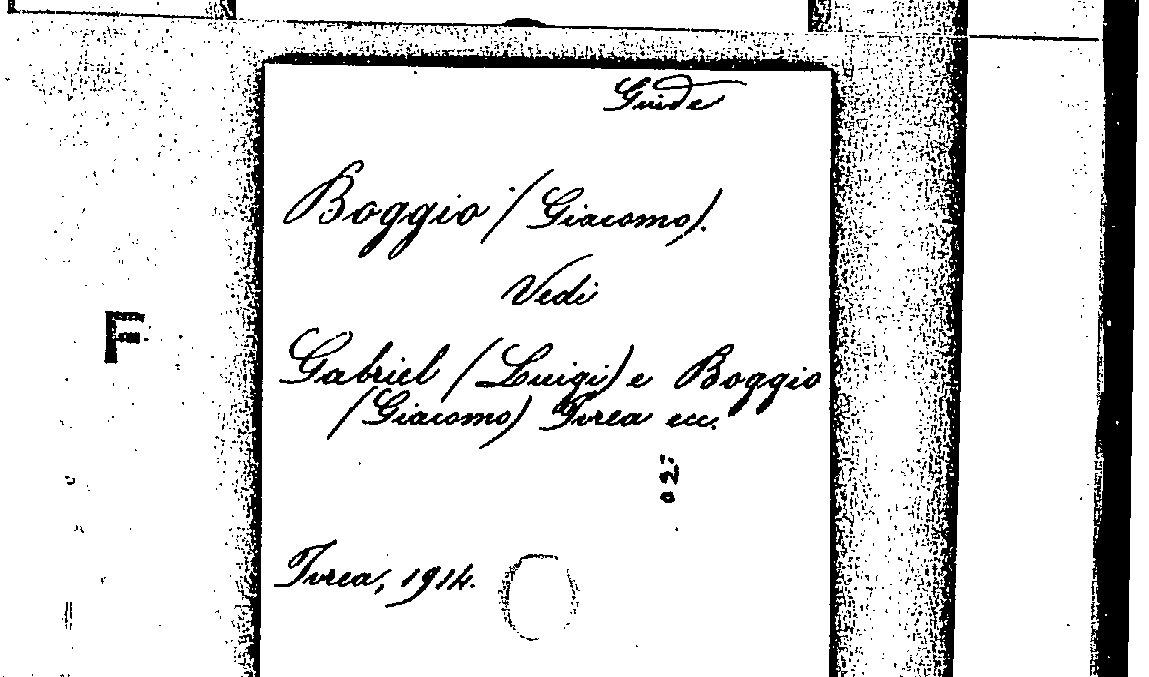 Guide
Boggio (Giacomo).
Vedi
F
Gabriel (Luigi) e Boggio
(Giacomo) Ivrea ecc.
Ivrea, 1914.